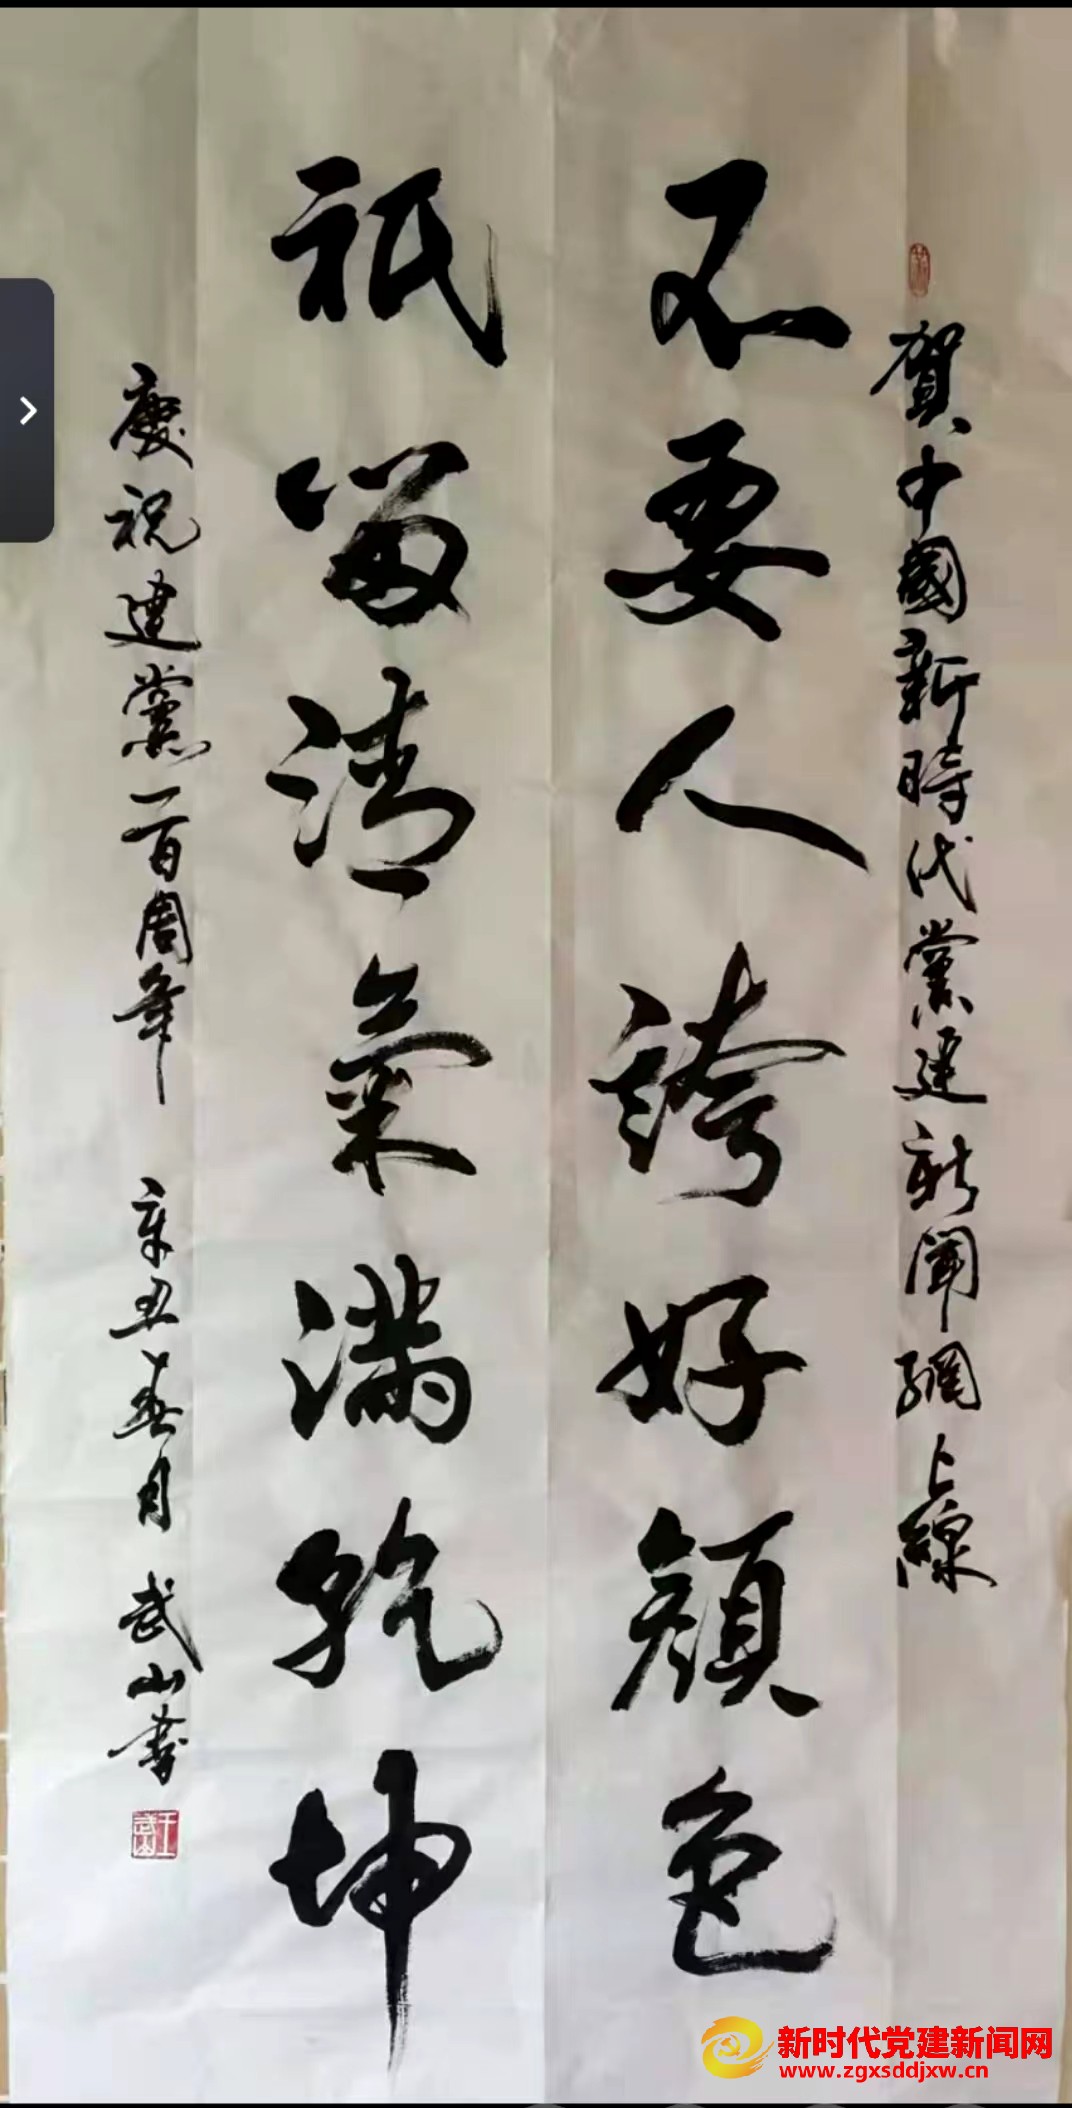 賀中國新時代黨建新聞網上線
不要人誇好顏色
祇留清氣滿乾坤
慶祝建黨一百周年 辛丑春月 武山書
王武山
新时代党建新闻网
www.zgxsddjxw.cn